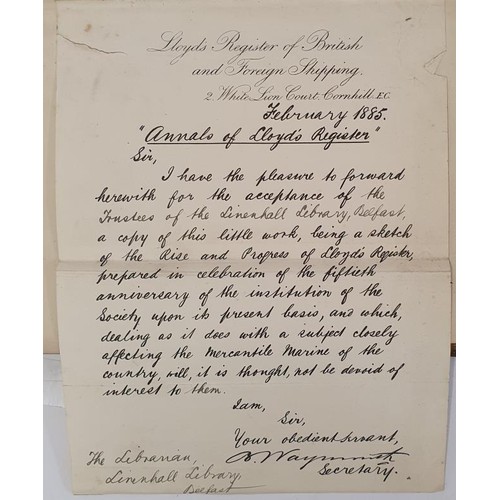 Lloyd's Register of British
and Foreign Shipping.
2 White Lion Court, Cornhill, E.C.
February 1885.
"Annals of Lloyd's Register"
Sir,
I have the pleasure to forward
herewith for the acceptance of the
Trustees of the Linenhall Library, Belfast,
a copy of this little work, being a sketch
of the Rise and Progress of Lloyd's Register,
prepared in celebration of the fiftieth
anniversary of the institution of the
Society upon its present basis, and which,
dealing as it does with a subject closely
affecting the Mercantile Marine of the
country, will, it is thought, not be devoid of
interest to them.
I am,
Sir,
Your obedient servant,
B. Waymouth
Secretary.
The Librarian,
Linenhall Library,
Belfast